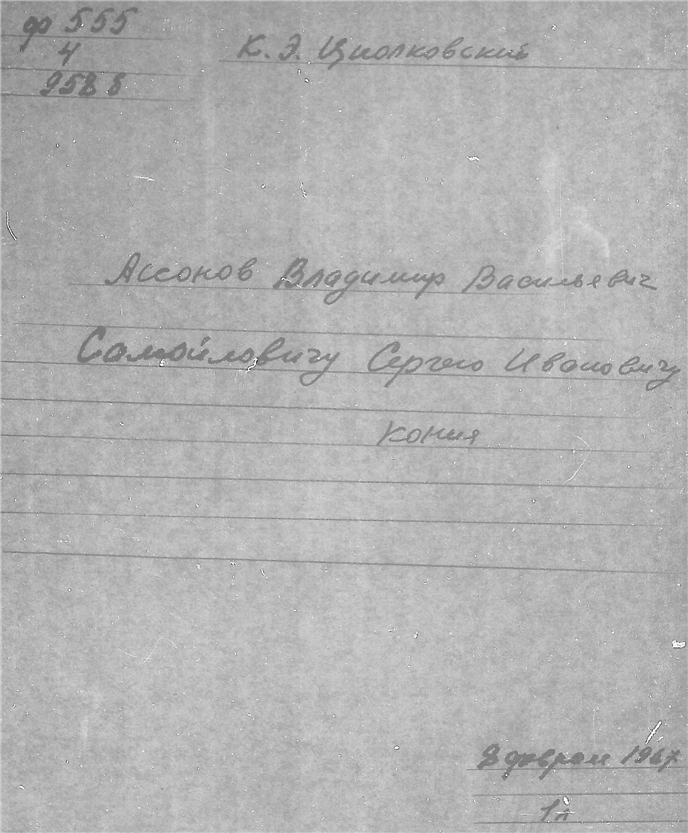 ф 555
4
К. Э. Циолковский
Ассонов Владимир Васильевич
Самойловичу Сергею Ивановичу
копия
8 февраля 1967
1л